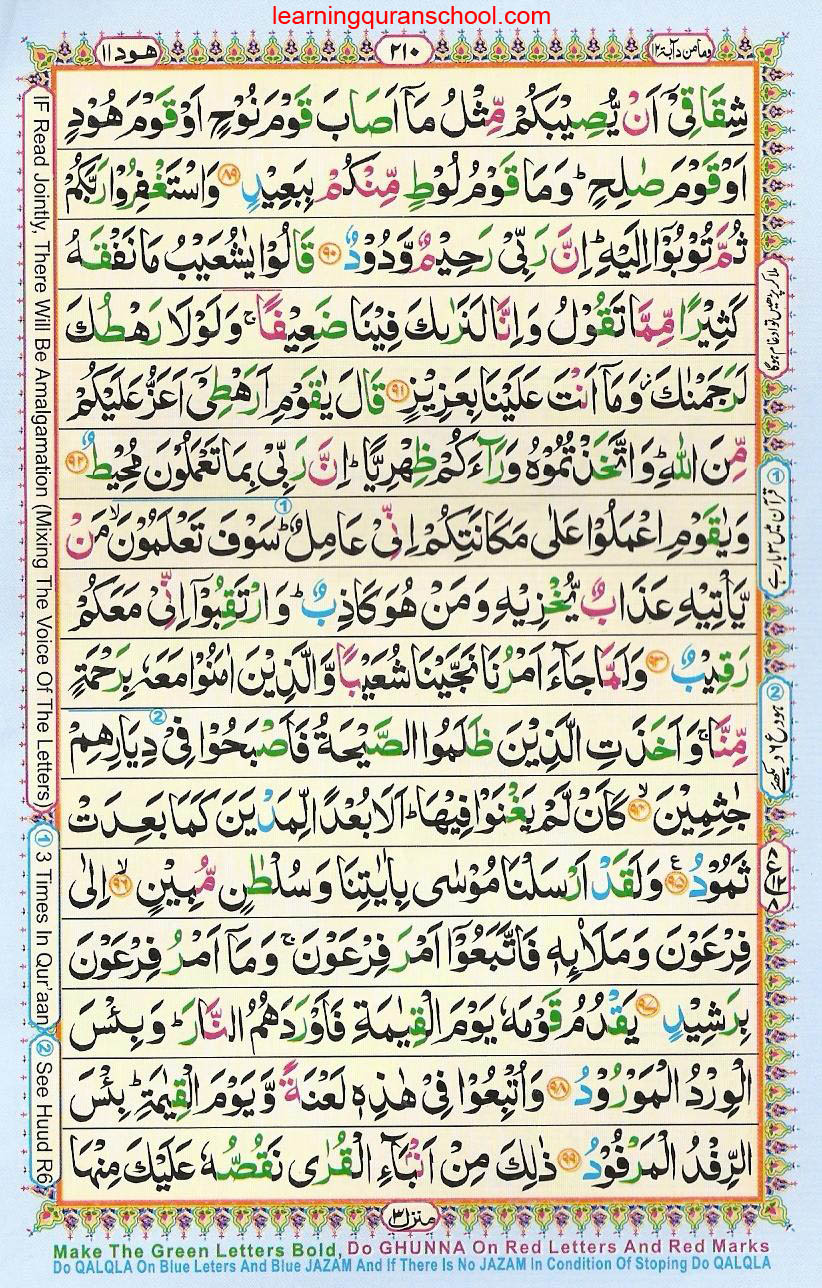 learningquranschool.com
هود ١١
٢١٠
وما من دآبة ١٢
شِقَاقِیْۤ اَنْ یُّصِیْبَكُمْ مِّثْلُ مَاۤ اَصَابَ قَوْمَ نُوْحٍ اَوْ قَوْمَ هُوْدٍ
اَوْ قَوْمَ صٰلِحٍ ؕ وَمَا قَوْمُ لُوْطٍ مِّنْكُمْ بِبَعِیْدٍ ۸۹ وَاسْتَغْفِرُوْا رَبَّكُمْ
ثُمَّ تُوْبُوْۤا اِلَیْهِ ؕ اِنَّ رَبِّیْ رَحِیْمٌ وَّدُوْدٌ ۹۰ قَالُوْا یٰشُعَیْبُ مَا نَفْقَهُ
كَثِیْرًا مِّمَّا تَقُوْلُ وَاِنَّا لَنَرٰىكَ فِیْنَا ضَعِیْفًا ۚ وَلَوْلَا رَهْطُكَ
لَرَجَمْنٰكَ ؗ وَمَاۤ اَنْتَ عَلَیْنَا بِعَزِیْزٍ ۹۱ قَالَ یٰقَوْمِ اَرَهْطِیْۤ اَعَزُّ عَلَیْكُمْ
مِّنَ اللّٰهِ ؕ وَاتَّخَذْتُمُوْهُ وَرَآءَكُمْ ظِهْرِیًّا ؕ اِنَّ رَبِّیْ بِمَا تَعْمَلُوْنَ مُحِیْطٌ ۹۲
وَیٰقَوْمِ اعْمَلُوْا عَلٰی مَكَانَتِكُمْ اِنِّیْ عَامِلٌ ؕ سَوْفَ تَعْلَمُوْنَ ۙ مَنْ
یَّاْتِیْهِ عَذَابٌ یُّخْزِیْهِ وَمَنْ هُوَ كَاذِبٌ ؕ وَارْتَقِبُوْۤا اِنِّیْ مَعَكُمْ
رَقِیْبٌ ۹۳ وَلَمَّا جَآءَ اَمْرُنَا نَجَّیْنَا شُعَیْبًا وَّالَّذِیْنَ اٰمَنُوْا مَعَهٗ بِرَحْمَةٍ
مِّنَّا ۚ وَاَخَذَتِ الَّذِیْنَ ظَلَمُوا الصَّیْحَةُ فَاَصْبَحُوْا فِیْ دِیَارِهِمْ
جٰثِمِیْنَ ۙ ۹۴ كَاَنْ لَّمْ یَغْنَوْا فِیْهَا ؕ اَلَا بُعْدًا لِّمَدْیَنَ كَمَا بَعِدَتْ
ثَمُوْدُ ۹۵ ع وَلَقَدْ اَرْسَلْنَا مُوْسٰی بِاٰیٰتِنَا وَسُلْطٰنٍ مُّبِیْنٍ ۙ ۹۶ اِلٰی
فِرْعَوْنَ وَمَلَا۟ئِهٖ فَاتَّبَعُوْۤا اَمْرَ فِرْعَوْنَ ۚ وَمَاۤ اَمْرُ فِرْعَوْنَ
بِرَشِیْدٍ ۹۷ یَقْدُمُ قَوْمَهٗ یَوْمَ الْقِیٰمَةِ فَاَوْرَدَهُمُ النَّارَ ؕ وَبِئْسَ
الْوِرْدُ الْمَوْرُوْدُ ۹۸ وَاُتْبِعُوْا فِیْ هٰذِهٖ لَعْنَةً وَّیَوْمَ الْقِیٰمَةِ ؕ بِئْسَ
الرِّفْدُ الْمَرْفُوْدُ ۹۹ ذٰلِكَ مِنْ اَنْۢبَآءِ الْقُرٰی نَقُصُّهٗ عَلَیْكَ مِنْهَا
منزل ٣
IF Read Jointly, There Will Be Amalgamation (Mixing The Voice Of The Letters)
① 3 Times In Qur'aan
② See Huud R6
ملا کر پڑھیں تو ادغام ہوگا
① قرآن میں ٣ بار ہے
② ہود ع ٦ دیکھئے
Make The Green Letters Bold, Do GHUNNA On Red Letters And Red Marks
Do QALQLA On Blue Leters And Blue JAZAM And If There Is No JAZAM In Condition Of Stoping Do QALQLA